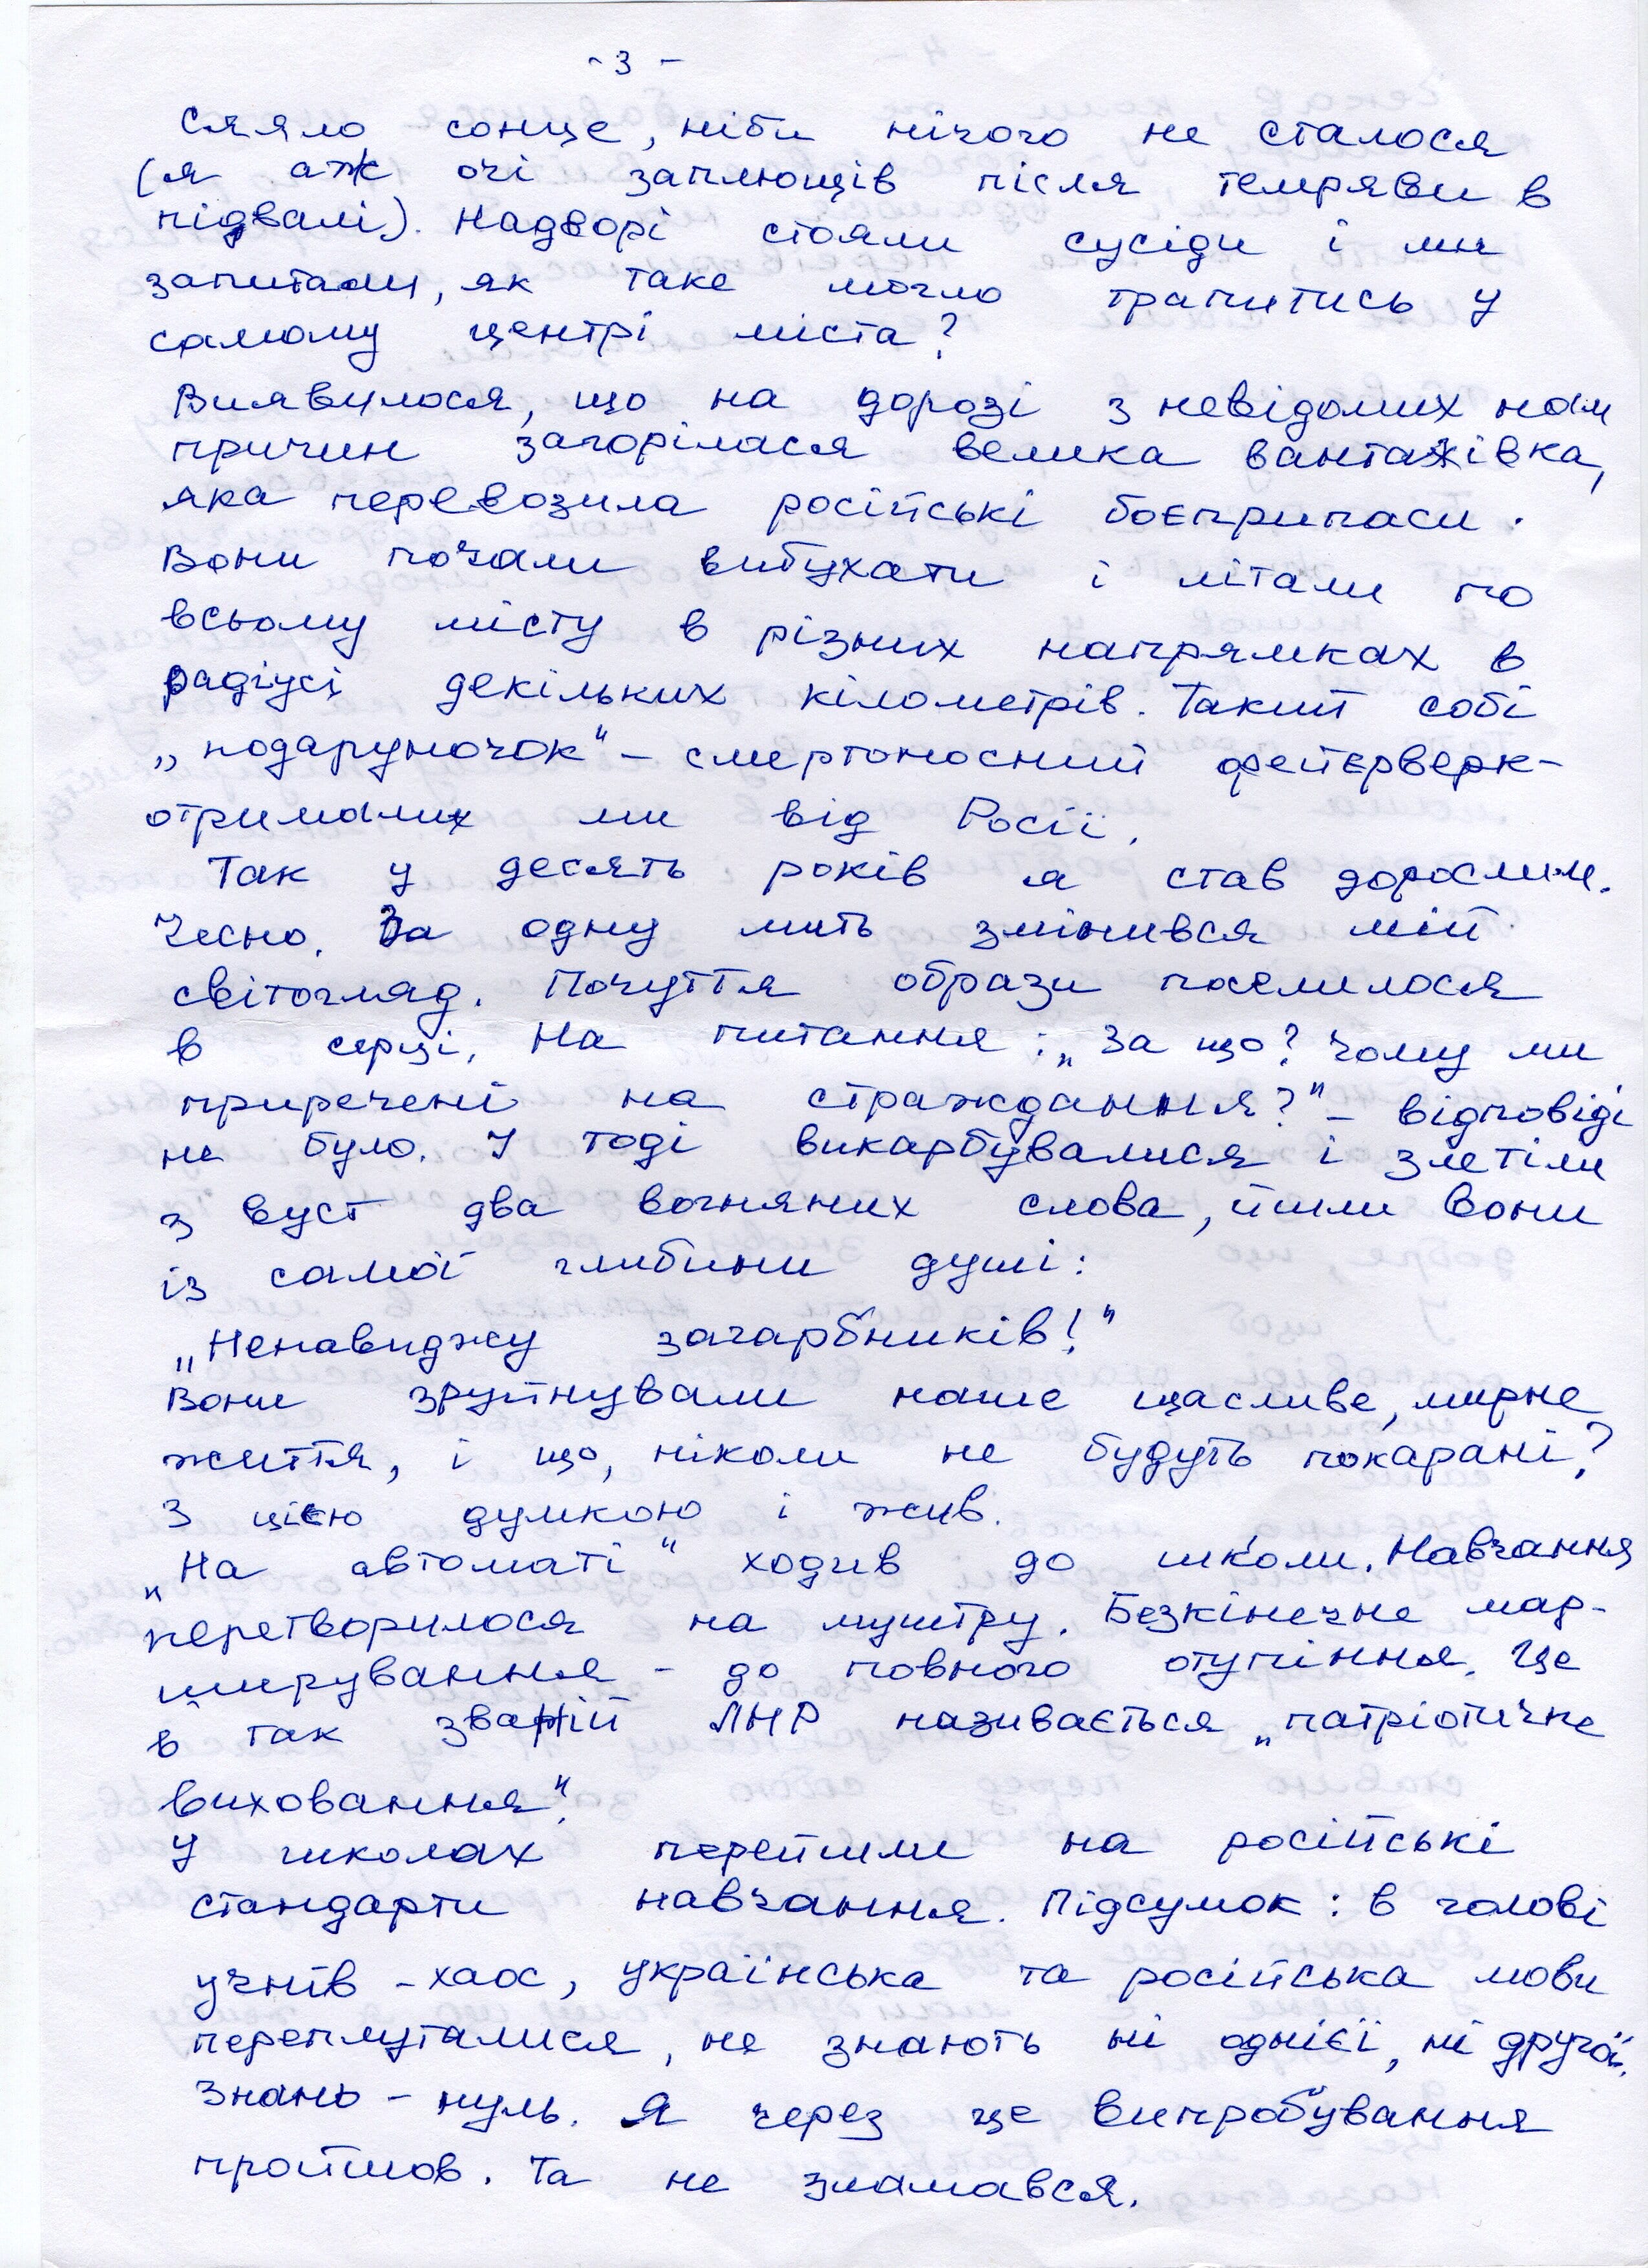 - 3 -
Сяяло сонце, ніби нічого не сталося
(я аж очі заплющів після темряви в
підвалі). Надворі стояли сусіди і ми
запитали, як таке могло трапитись у
самому центрі міста?
Виявилося, що на дорозі з невідомих нам
причин загорілася велика вантажівка,
яка перевозила російські боєприпаси.
Вони почали вибухати і літали по
всьому місту в різних напрямках в
радіусі декількох кілометрів. Такий собі
„подаруночок" – смертоносний фейєрверк –
отримали ми від Росії.
Так у десять років я став дорослим.
Чесно. За одну мить змінився мій
світогляд. Почуття образи поселилося
в серці. На питання: „За що? Чому ми
приречені на страждання?" – відповіді
не було. І тоді викарбувалися і злетіли
з вуст два вогняних слова, йшли вони
із самої глибини душі:
„Ненавиджу загарбників!"
Вони зруйнували наше щасливе, мирне
життя, і що, ніколи не будуть покарані?
З цією думкою і жив.
„На автоматі" ходив до школи. Навчання
перетворилося на муштру. Безкінечне мар-
ширування – до повного отупіння. Це
в так званій ЛНР називається „патріотичне
виховання".
У школах перейшли на російські
стандарти навчання. Підсумок: в голові
учнів – хаос, українська та російська мови
переплуталися, не знають ні однієї, ні другої.
Знань – нуль. Я через це випробування
пройшов. Та не зламався.